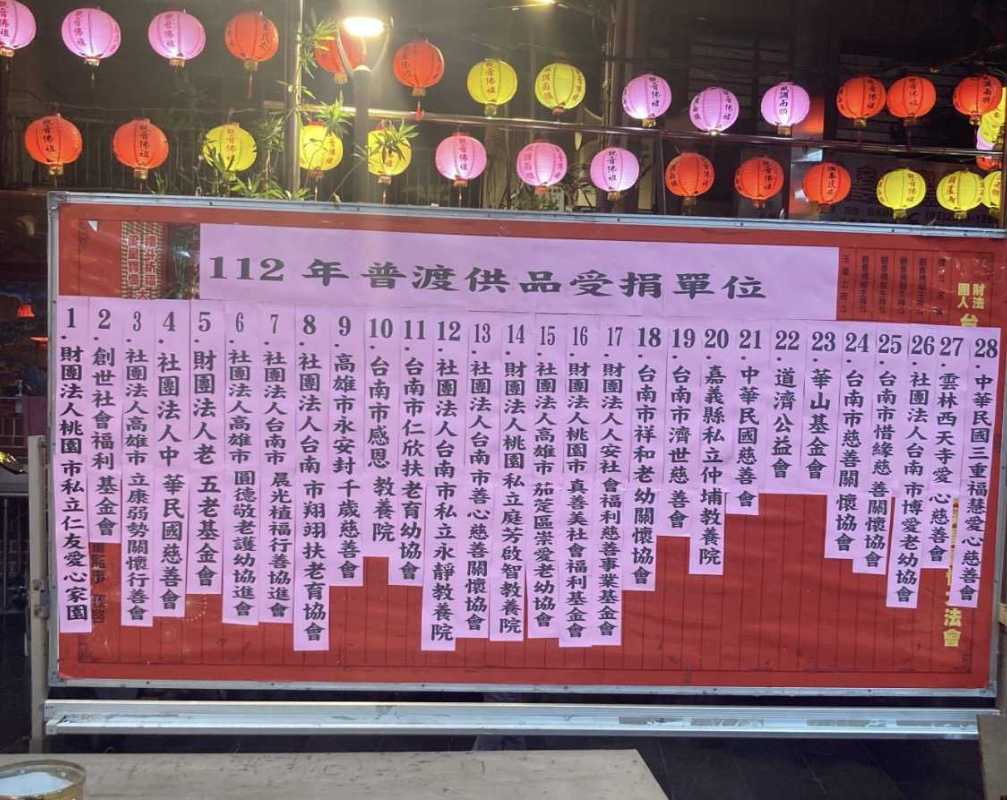 112年普渡供品受捐單位
1.財團法人桃園市私立仁友愛心家園
2.創世社會福利基金會
3.社團法人高雄市立康弱勢關懷行善會
4.社團法人中華民國慈善會
5.財團法人老五老基金會
6.社團法人高雄市圓德敬老護幼協進會
7.社團法人台南市晨光植福行善協進會
8.社團法人台南市翔翊扶老育協會
9.高雄市永安封千歲慈善會
10.台南市感恩教養院
11.台南市仁欣扶老育幼協會
12.社團法人台南市私立永靜教養院
13.社團法人台南市善心慈善關懷協會
14.財團法人桃園私立庭芳啟智教養院
15.社團法人高雄市茄萣區崇愛老幼協會
16.社團法人桃園市真善美社會福利基金會
17.財團法人人安社會福利慈善事業基金會
18.台南市祥和老幼關懷協會
19.台南市濟世慈善會
20.嘉義縣私立仲埔教養院
21.中華民國慈善會
22.道濟公益會
23.華山基金會
24.台南市慈善關懷協會
25.台南市惜緣慈善關懷協會
26.社團法人台南市博愛老幼協會
27.雲林西天寺愛心慈善會
28.中華民國三重福慧愛心慈善會
財團法人台
法會
觀音佛祖